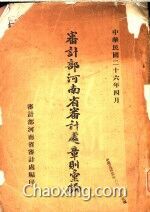 中華民國二十六年四月
審計部河南省審計處章則彙編
審計部河南省審計處編印
Chaoxing